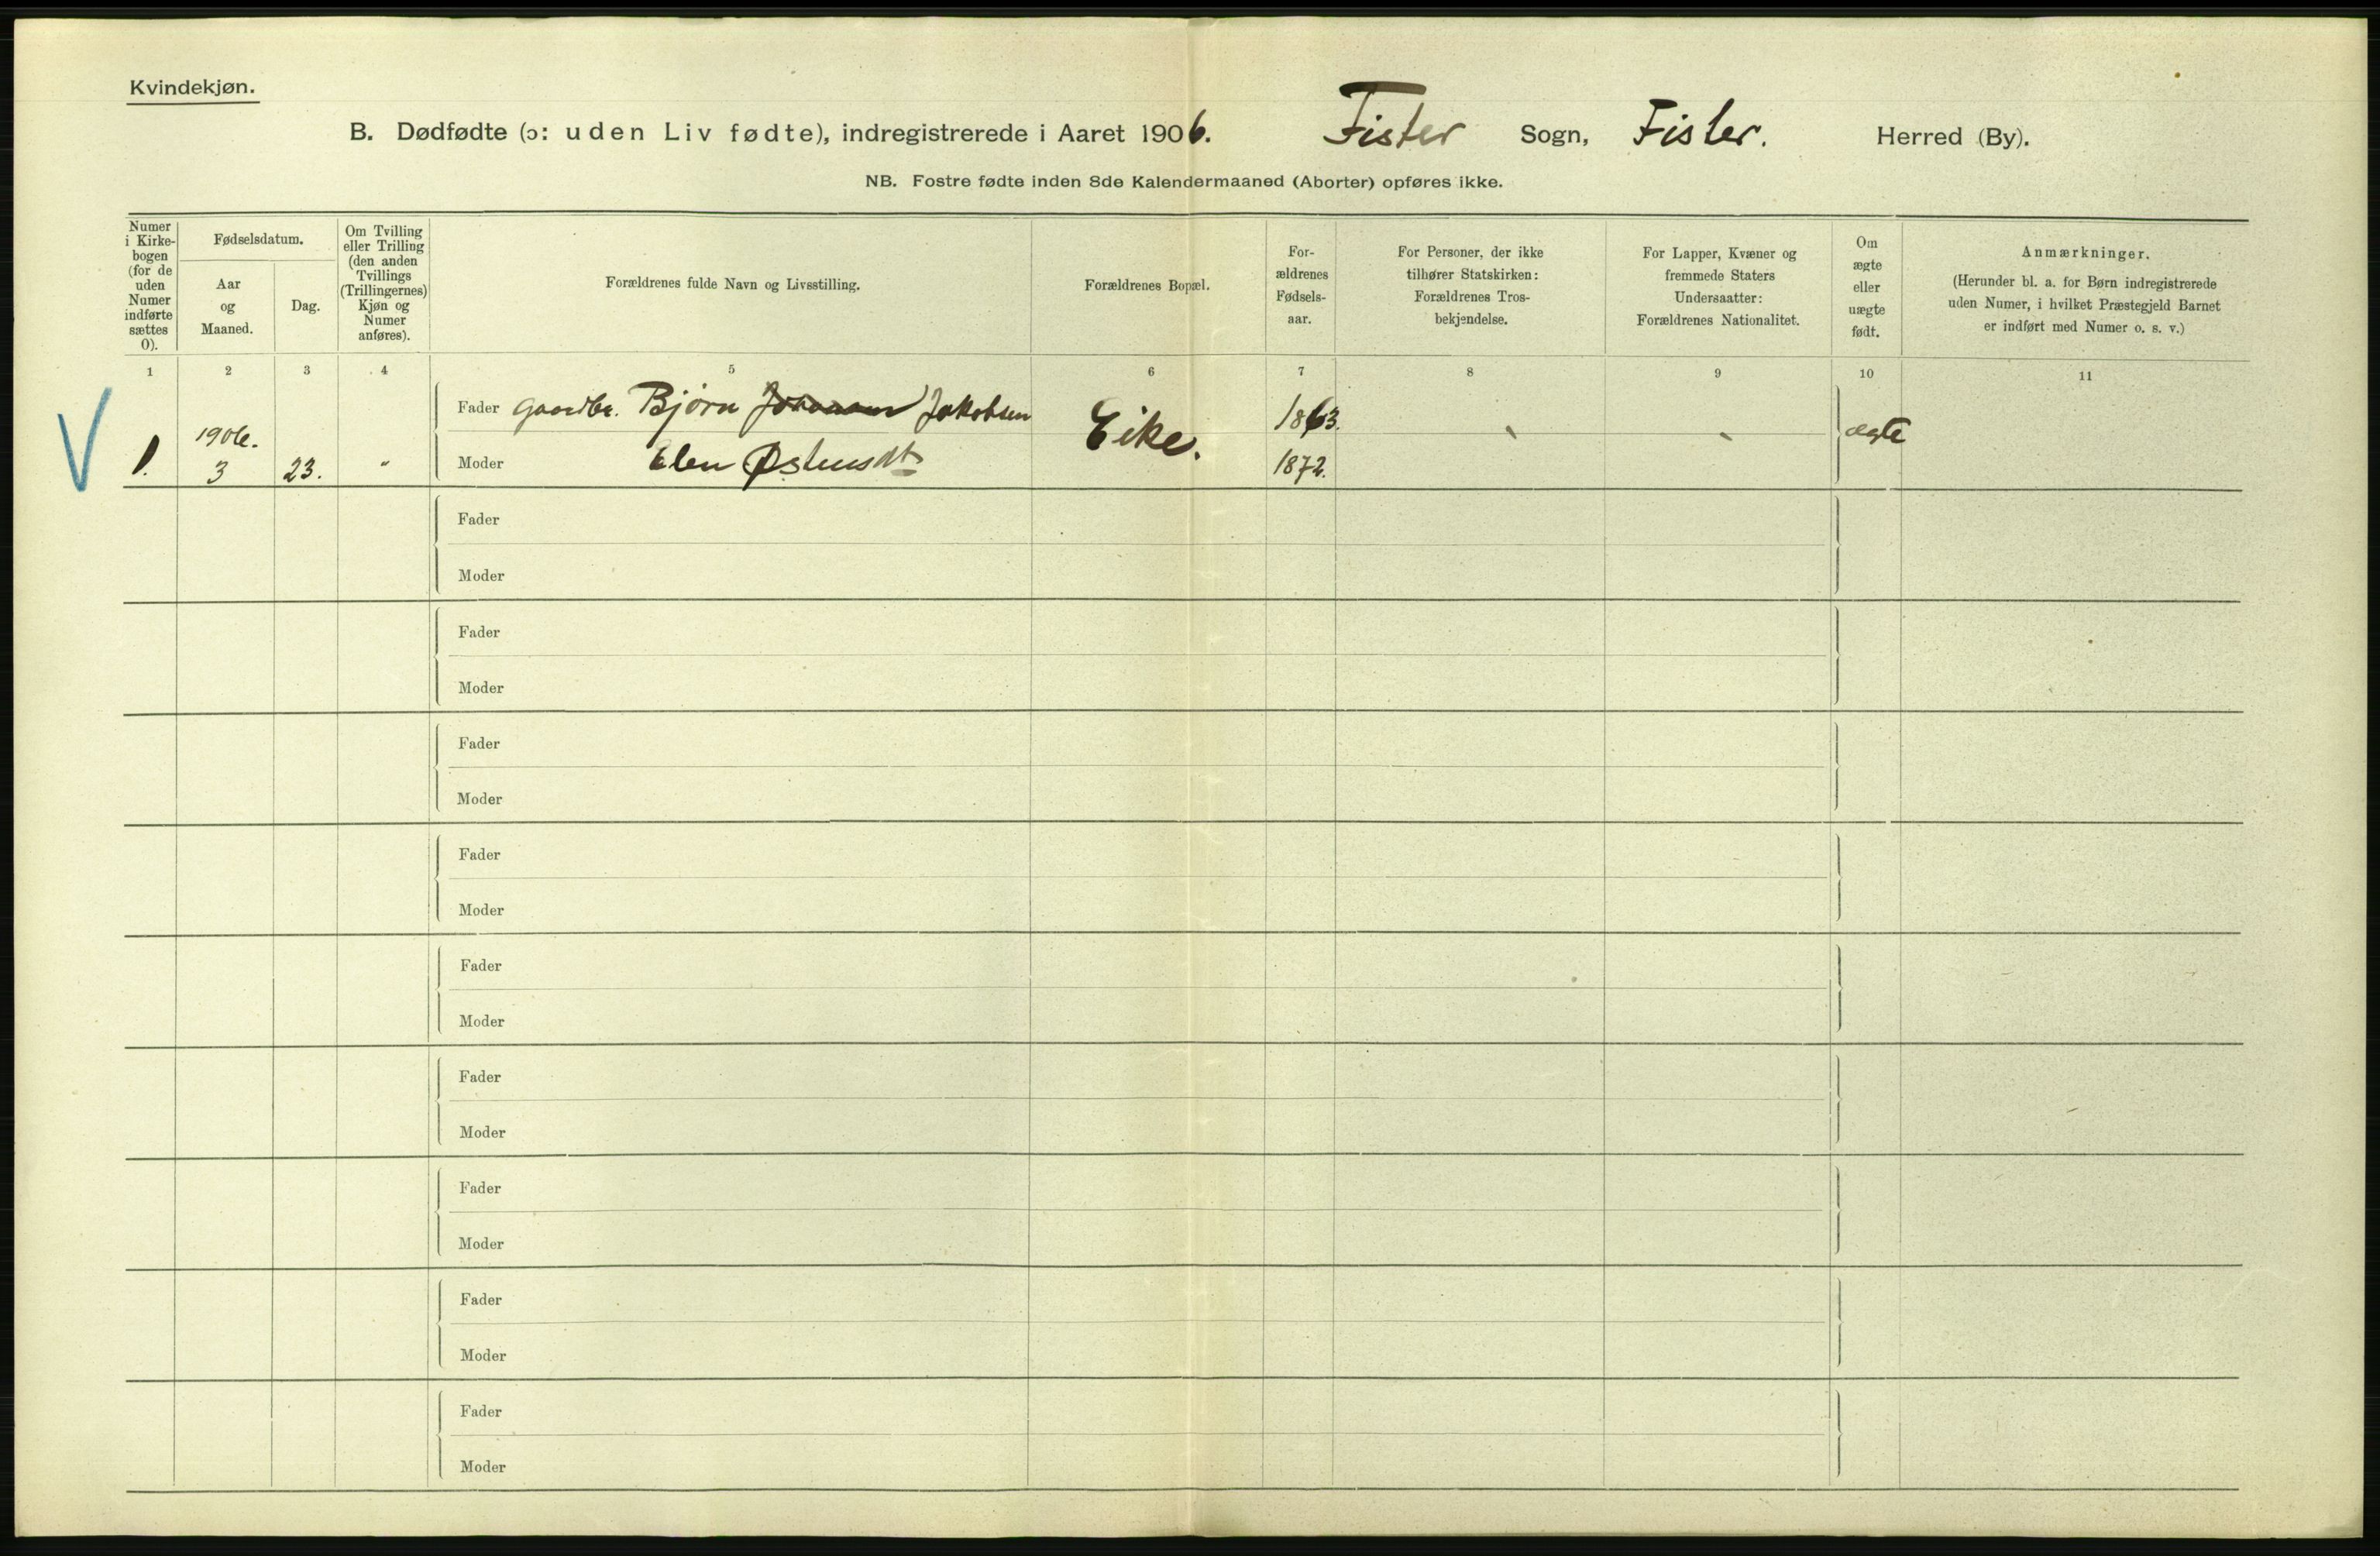 Kvindekjøn.
B. Dødfødte (ɔ: uden Liv fødte), indregistrerede i Aaret 1906. Fister Sogn, Fister. Herred (By).
NB. Fostre fødte inden 8de Kalendermaaned (Aborter) opføres ikke.
Numer i Kirke- bogen (for de uden Numer indførte sættes 0).
Fødselsdatum.
Aar og Maaned.
Dag.
Om Tvilling eller Trilling (den anden Tvillings (Trillingernes) Kjøn og Numer anføres).
Forældrenes fulde Navn og Livsstilling.
Forældrenes Bopæl.
For- ældrenes Fødsels- aar.
For Personer, der ikke tilhører Statskirken: Forældrenes Tros- bekjendelse.
For Lapper, Kvæner og fremmede Staters Undersaatter: Forældrenes Nationalitet.
Om ægte eller uægte født.
Anmærkninger.
(Herunder bl. a. for Børn indregistrerede uden Numer, i hvilket Præstegjeld Barnet er indført med Numer o. s. v.)
1 2 3 4 5 6 7 8 9 10 11
V
Fader Gaardbr. Bjørn Jakobsen 1863.
1. 1906. 3 23. " Eike. ægte
Moder Elen 1872.
Fader
Moder
Fader
Moder
Fader
Moder
Fader
Moder
Fader
Moder
Fader
Moder
Fader
Moder
Fader
Moder
Fader
Moder